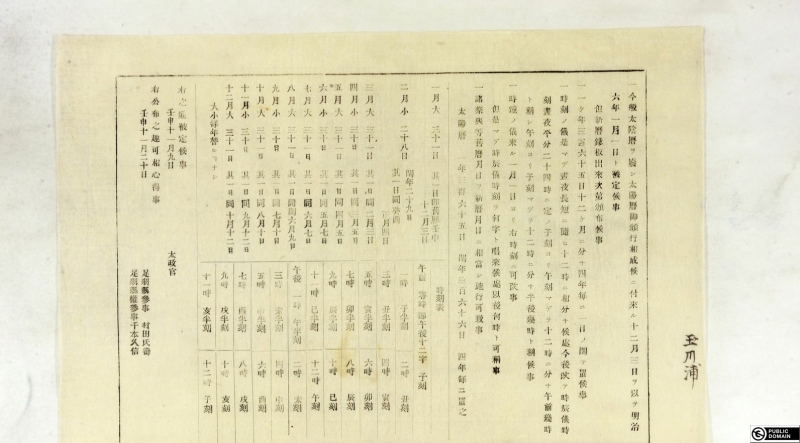 玉川浦
一今般太陰暦ヲ廃シ太陽暦御頒行相成候ニ付来ル十二月三日ヲ以テ明治
六年一月一日ト被定候事
但新暦鏤板出来次第頒布候事
一一ケ年三百六十五日十二ケ月ニ分チ四年毎ニ一日ノ閏ヲ置候事
一時刻ノ儀是マテ昼夜長短ニ随ヒ十二時ニ相分チ候処今後改テ時辰儀時
刻昼夜平分二十四時ニ定メ子刻ヨリ午刻マテヲ十二時ニ分チ午前幾時
ト称シ午刻ヨリ子刻マテヲ十二時ニ分チ午後幾時ト称候事
一時鐘ノ儀来ル一月一日ヨリ右時刻ニ可改事
但是マテ時辰儀時刻ヲ何字ト唱来候処以後何時ト可称事
一諸祭典等旧暦月日ヲ新暦月日ニ相当シ施行可致事
太陽暦 一年三百六十五日 閏年三百六十六日 四年毎ニ置之
一月大 三十一日 其一日即旧暦壬申
十二月三日
二月小 二十八日 閏年二十九日
其一日同癸酉
正月四日
三月大 三十一日 其一日同二月三日
四月小 三十日 其一日同三月五日
五月大 三十一日 其一日同四月五日
六月小 三十日 其一日同五月七日
七月大 三十一日 其一日同六月七日
八月大 三十一日 其一日同閏六月九日
九月小 三十日 其一日同七月十日
十月大 三十一日 其一日同八月十日
十一月小 三十日 其一日同九月十二日
十二月大 三十一日 其一日同十月十二日
大小毎年替ルコトナシ
時刻表
午前 零時 即午後十二字 子刻
一時 子半刻 二時 丑刻
三時 丑半刻 四時 寅刻
五時 寅半刻 六時 卯刻
七時 卯半刻 八時 辰刻
九時 辰半刻 十時 巳刻
十一時 巳半刻 十二時 午刻
午後 一時 午半刻 二時 未刻
三時 未半刻 四時 申刻
五時 申半刻 六時 酉刻
七時 酉半刻 八時 戌刻
九時 戌半刻 十時 亥刻
十一時 亥半刻 十二時 子刻
右之通被定候事
壬申十一月九日
太政官
右公布之趣可相心得事
壬申十一月二十日
足羽県参事 村田氏寿
足羽県権参事千本久信
PUBLIC
DOMAIN